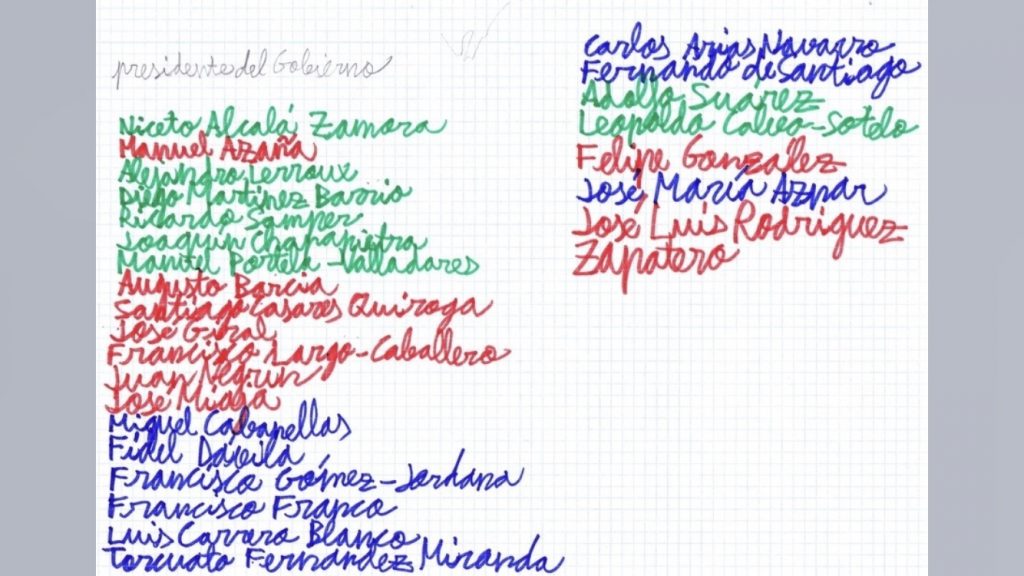 presidente del Gobierno
Niceto Alcalá Zamora
Manuel Azaña
Alejandro Lerroux
Diego Martinez Barrio
Ricardo Samper
Joaquin Chapaprietra
Manuel Portela-Valladares
Augusto Barcia
Santiago Casares Quiroga
José Giral
Francisco Largo-Caballero
Juan Negrin
José Miaga
Miguel Cabanellas
Fidel Dávila
Francisco Gómez-Jordana
Francisco Franco
Luis Carrero Blanco
Torcuato Fernández Miranda
Carlos Arias Navarro
Fernando de Santiago
Adolfo Suárez
Leopoldo Calvo-Sotelo
Felipe González
José María Aznar
José Luis Rodriguez
Zapatero